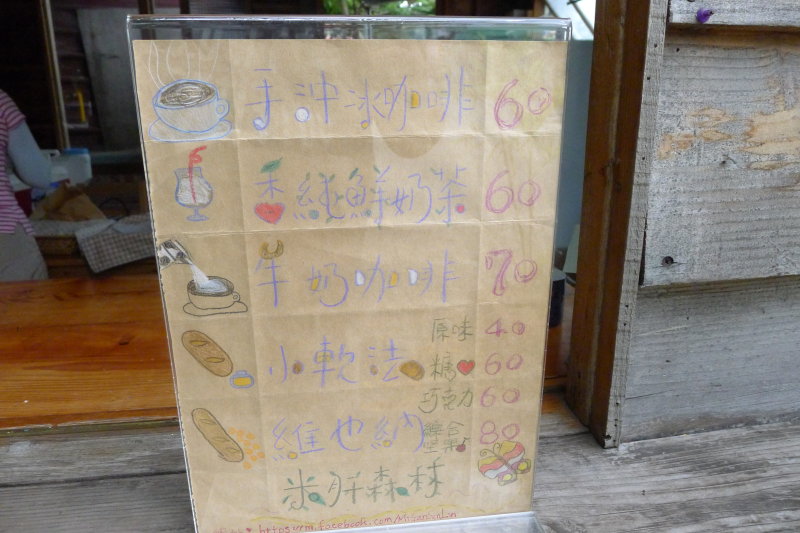 手沖冰咖啡 60
香純鮮奶茶 60
牛奶咖啡 70
原味 40
小軟法 糖 60
巧克力 60
維也納 綜合堅果 80
米胖森林